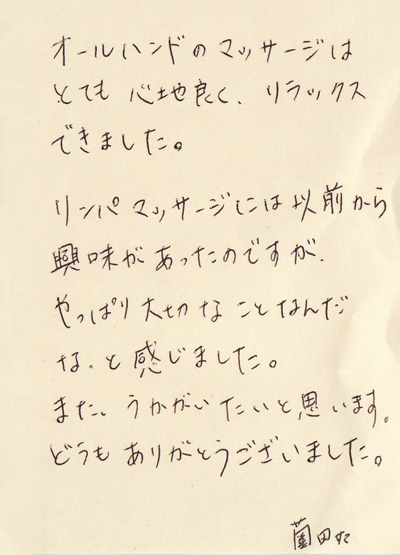 オールハンドのマッサージは
とても心地良く、リラックス
できました。
リンパマッサージには以前から
興味があったのですが、
やっぱり大切なことなんだ
な。と感じました。
また、うかがいたいと思います。
どうもありがとうございました。
薗田